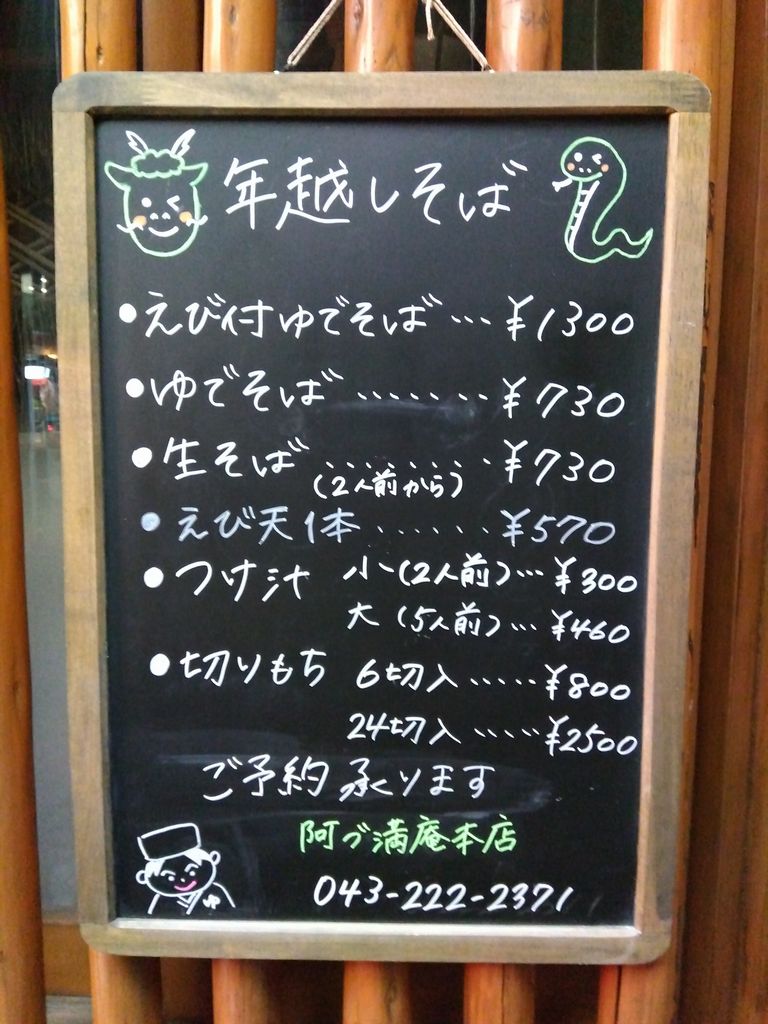 年越しそば
•えび付ゆでそば…¥1300
•ゆでそば.......¥730
•生そば........¥730
(2人前から)
•えび天1本......¥570
•つけ汁 小(2人前)…¥300
大(5人前)…¥460
•切りもち 6切入.....¥800
24切入.....¥2500
ご予約承ります
阿づ満庵本店
043-222-2371
ゆ